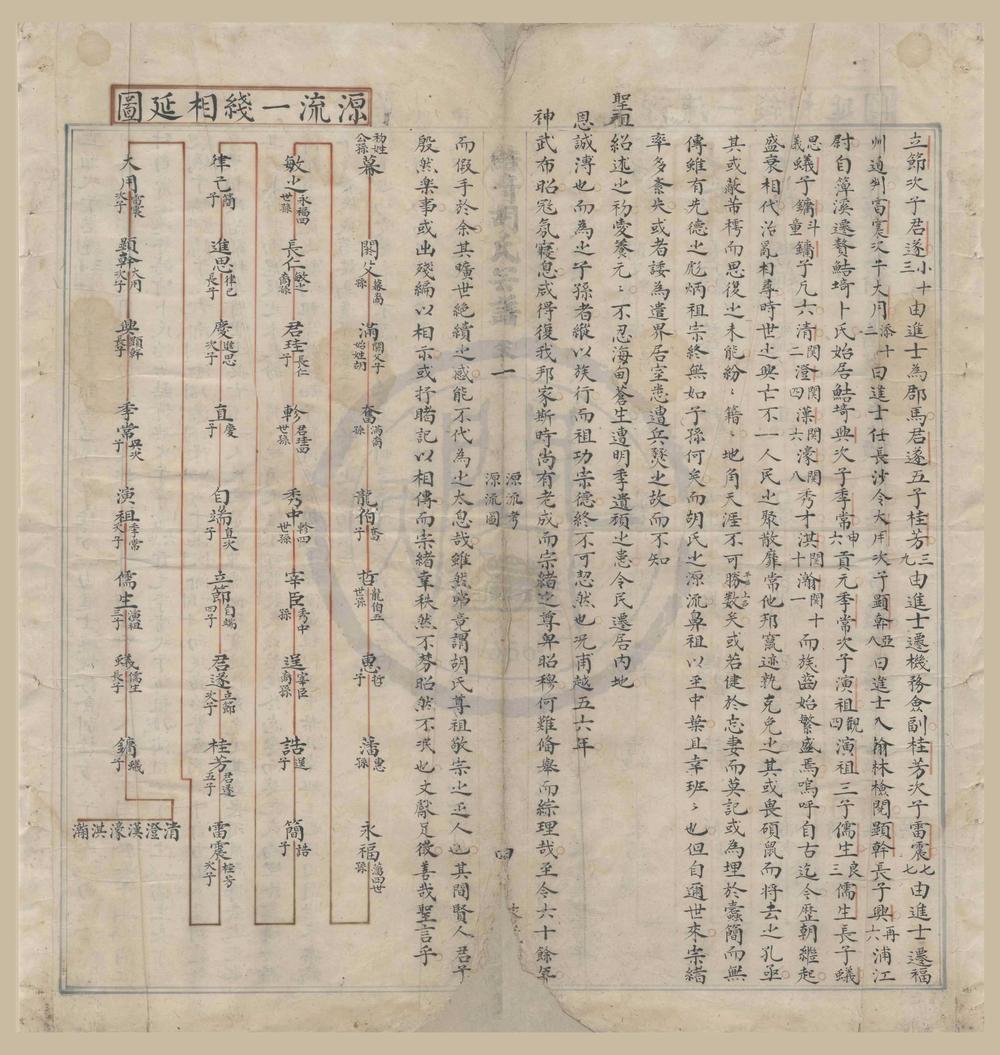 立節次子君遂小十三由進士為郡馬君遂五子桂芳三九由進士遷機務僉副桂芳次子雷震七七由進士遷福
州通判雷震次子大用添十二由進士任長沙令大用次子顯幹亞八由進士入翰林檢閱顯幹長子興再六浦江
尉自篁溪遷贅鮚埼卜氏始居鮚埼興次子季常申六貢元季常次子演祖觀四演祖三子儒生良三儒生長子蟻
思義蟻子鏞斗童鏞子凡六清閱二澄閱四漢閱六濠閱八秀才淇閱十瀚閱十一而族齒始繁盛焉嗚呼自古迄今歷朝繼起
盛衰相代治亂相尋時世之興亡不一人民之聚散靡常他邦竄迹孰克免之其或畏碩鼠而將去之孔亟
其或蔽芾樗而思復之未能紛紛籍籍地角天涯不可勝數矣或若健於忘妻而莫記或為埋於蠹簡而無
傳雖有先德之彪炳祖宗終無如子孫何矣而胡氏之源流鼻祖以至中葉且幸班班也但自遁世來宗緒
率多紊失或者諉為遣界居室悉遭兵燹之故而不知
聖祖紹述之初愛養元元不忍海甸蒼生遭明季遺頑之患令民遷居內地
恩誠溥也而為之子孫者縱以族行而祖功宗德終不可恝然也况甫越五六年
神武布昭冠氛寢息咸得復我邦家斯時尚有老成而宗緒之尊卑昭穆何難備舉而綜理哉至今六十餘年
源流考
源流圖
而假手於余其曠世絕續之感能不代為之太息哉雖然
殷然樂事或出殘編以相示或抒睹記以相傳而宗緒幸秩然不芬昭然不泯也文獻足徵善哉聖言乎
源流一綫相延圖
幕 初姓公孫
閼父 幕裔孫
滿 閼父子始姓胡
奮 滿裔孫
龍伯 奮子
哲 龍伯五世孫
惠 哲子
藩 惠孫
永福 藩四世孫
敏之 永福四世孫
長仁 敏之裔孫
君珪 長仁子
軫 君珪四世孫
秀中 軫四世孫
宰臣 秀中孫
逞 宰臣裔孫
誥 逞子
簡 誥子
律己 簡子
進思 律己長子
慶 進思次子
直 慶子
自端 直次子
立節 自端四子
君遂 立節次子
桂芳 君遂五子
雷震 桂芳次子
大用 雷震次子
顯幹 大用次子
興 顯幹長子
季常 興次子
演祖 季常次子
儒生 演祖三子
蟻 儒生長子
鏞 蟻子
清澄漢濠淇瀚